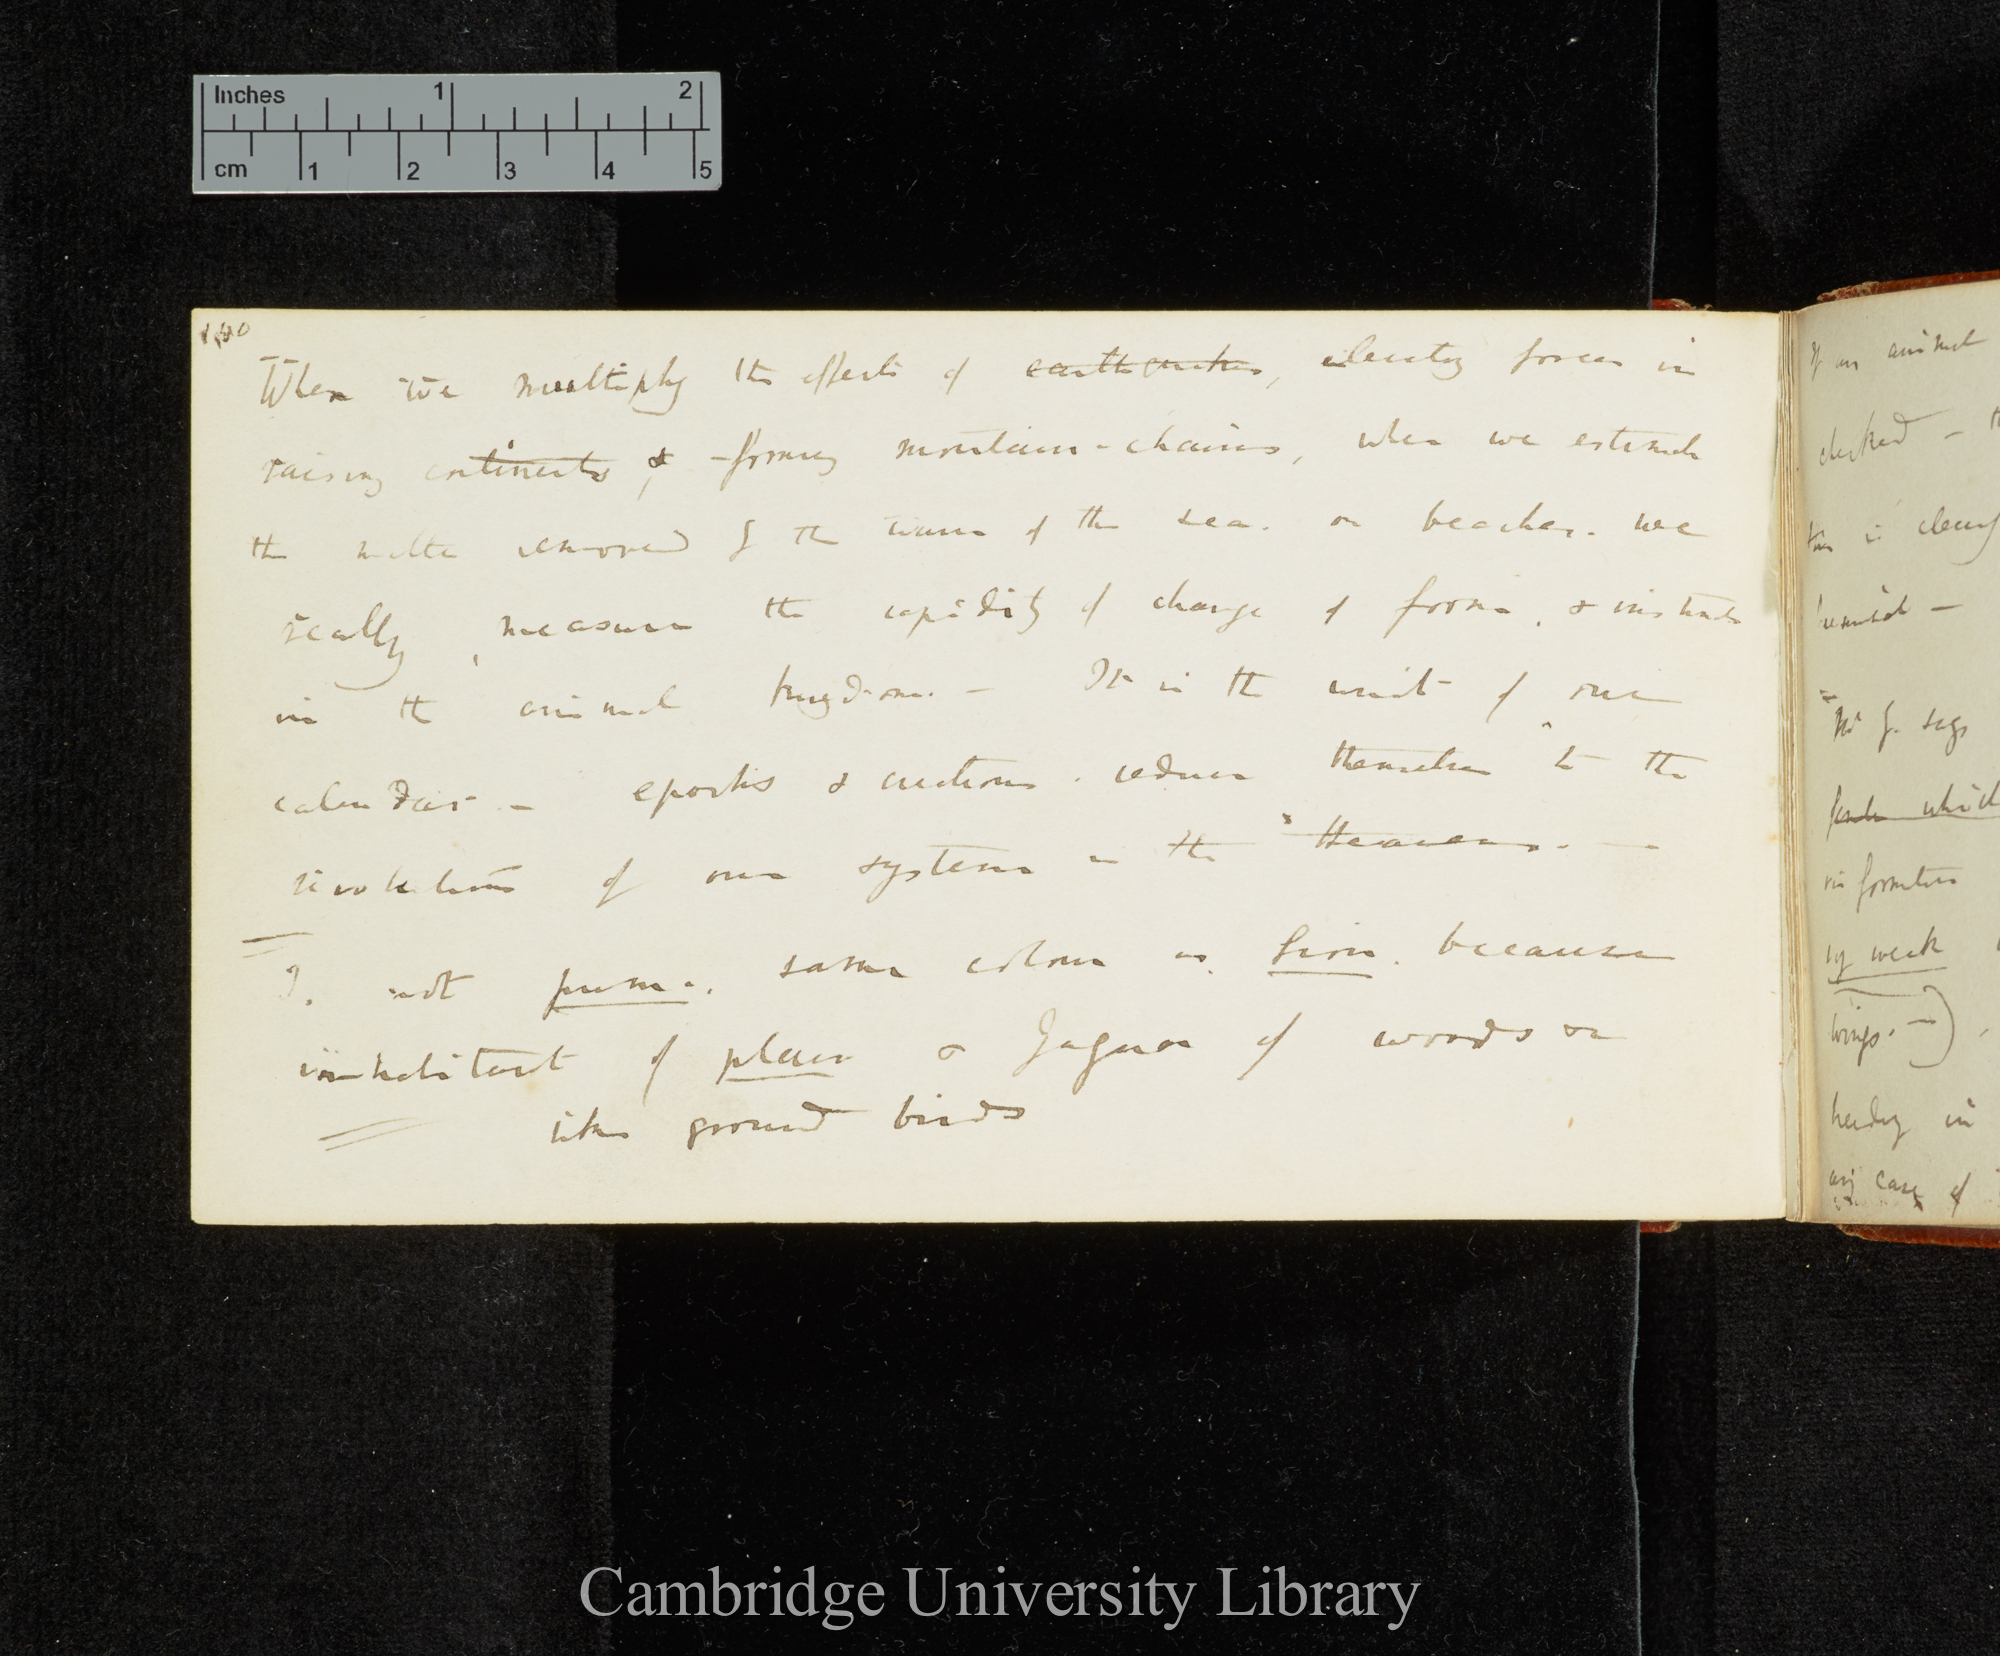 Inches 1 2
cm 1 2 3 4 5
When we multiply the effects of earthquakes, elevating forces in
raising continents, & forming mountain-chains, when we estimate
the matter removed by the waves of the sea. on beaches. we
really measure the rapidity of change of forms, & instincts
in the animal kingdom. — It is the unit of our
calendar. — epochs & creations reduce themselves to the
revolutions of our system in the Heavens. —
Is not puma. same colour as Lion. because
inhabitant of plain & Jaguar of woods
like ground birds
If an animal
checked —
this is clearly
which
in formation
by week
wings. —)
in
any case of
Cambridge University Library